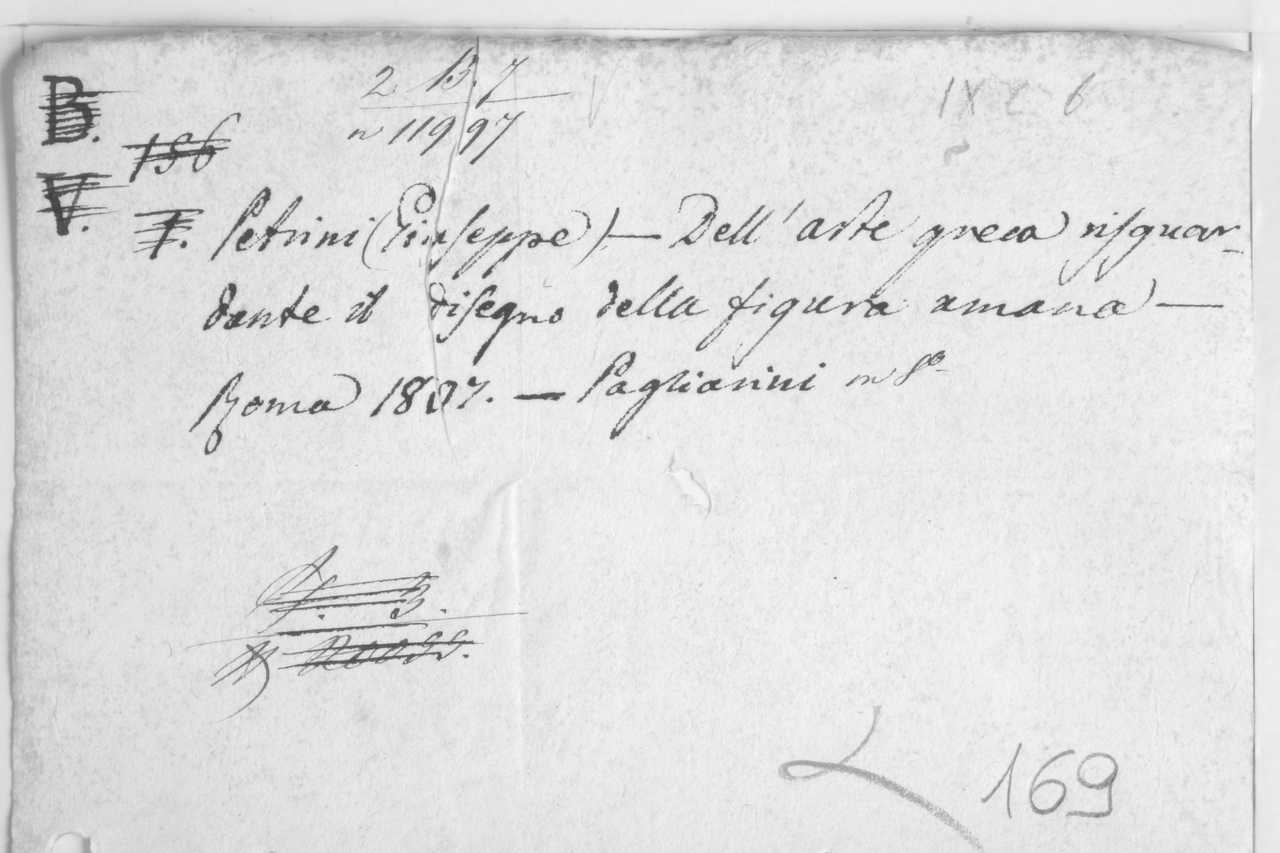 2 B. 7
n 11997
IX C 6
B.
186
V.
7. Petrini (Giuseppe) — Dell' arte greca risguar-
dante il disegno della figura umana —
Roma 1807. — Pagliarini in 8º
B.
169